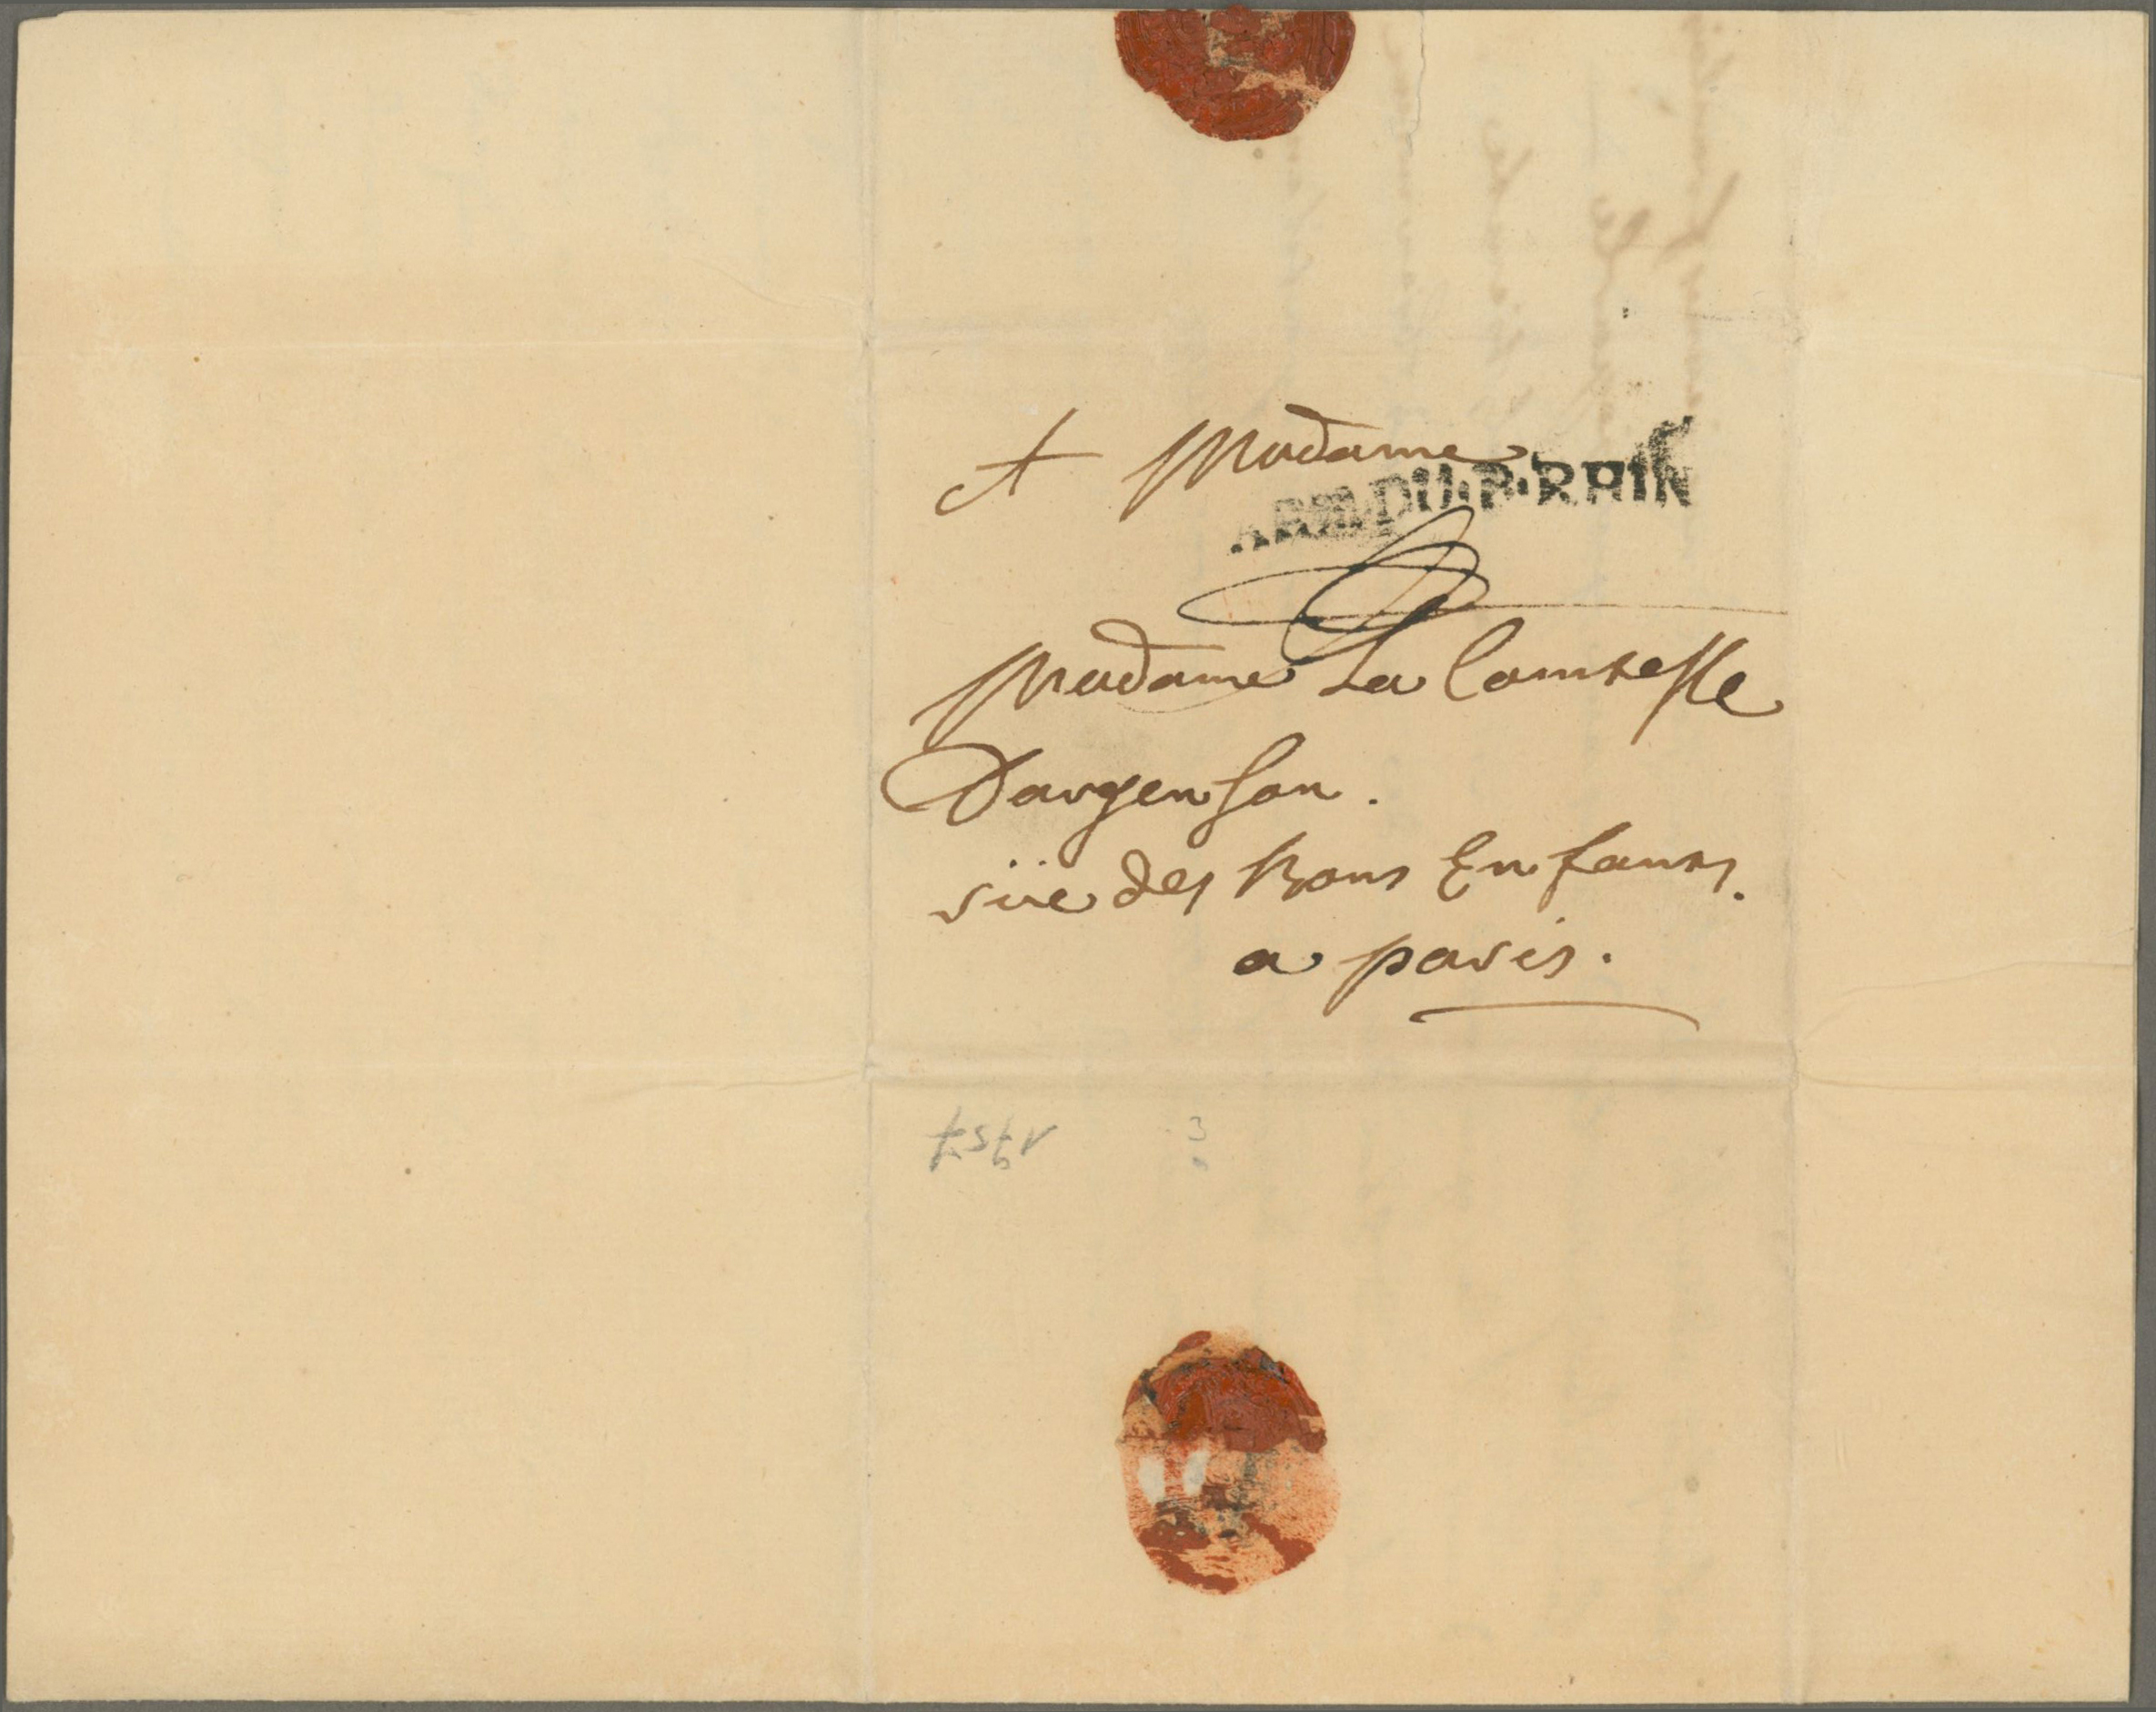 A Madame
ARM.DU.B.RHIN
Madame La Comtesse
Dargenson.
rüe des Bons Enfants.
a paris.
1757